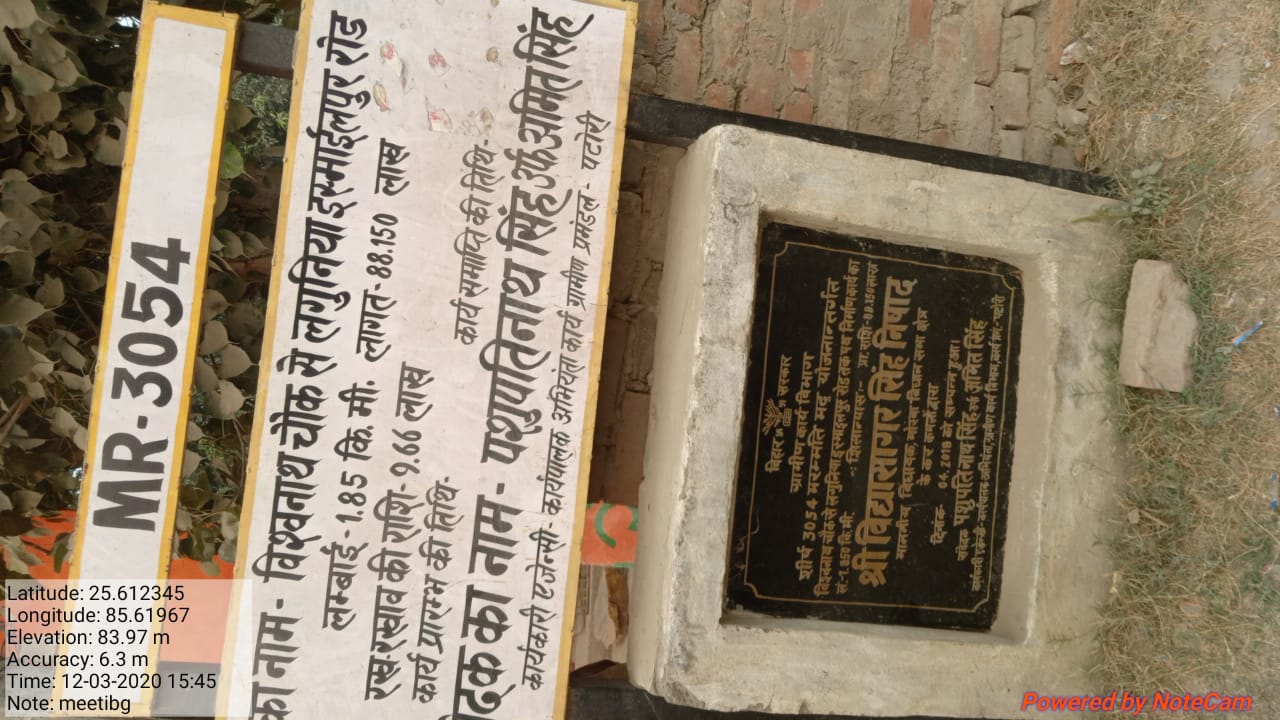 MR-3054
का नाम- विश्वनाथ चौक से लगुनिया इस्माईलपुर रोड
लम्बाई- 1.85 कि.मी. लागत- 88.150 लाख
रख-रखाव की राशि- 9.66 लाख
कार्य प्रारम्भ की तिथि- कार्य समाप्ति की तिथि-
का नाम- पशुपतिनाथ सिंह उर्फ अमित सिंह
कार्यकारी एजेन्सी- कार्यपालक अभियंता कार्य ग्रामीण प्रमंडल- पटोरी
बिहार सरकार
ग्रामीण कार्य विभाग
शीर्ष 3054 मरम्मति मद योजनान्तर्गत
विश्वनाथ चौक से लगुनिया इस्माइलपुर रोड तक पथ निर्माण कार्य का
-: शिलान्यास:-
श्री विद्यासागर सिंह निषाद
माननीय विधायक, मोरवा विधान सभा क्षेत्र
के कर कमलों द्वारा
दिनांक- 04.2018 को सम्पन्न हुआ।
संवेदक पशुपतिनाथ सिंह उर्फ अमित सिंह
Latitude: 25.612345
Longitude: 85.61967
Elevation: 83.97 m
Accuracy: 6.3 m
Time: 12-03-2020 15:45
Note: meetibg
Powered by NoteCam